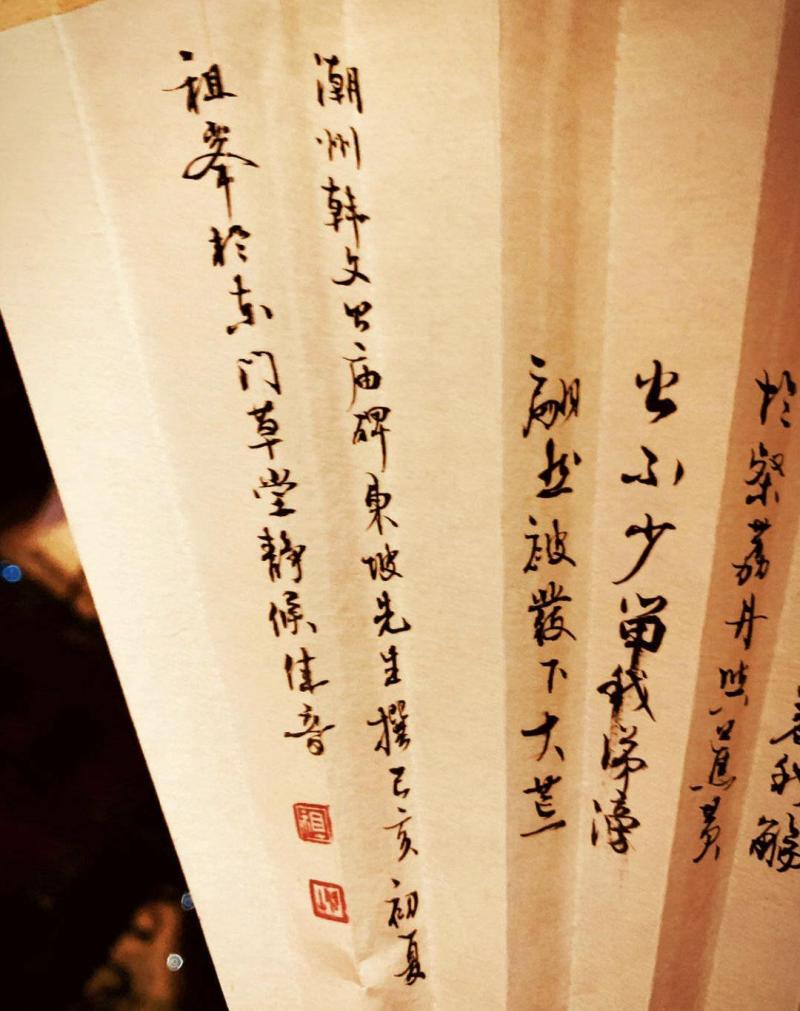 羞我觞
於粲荔丹與蕉黄
公不少留我涕滂
翩然被發下大荒
潮州韩文公庙碑東坡先生撰己亥初夏
祖峯於东门草堂靜候佳音
祖